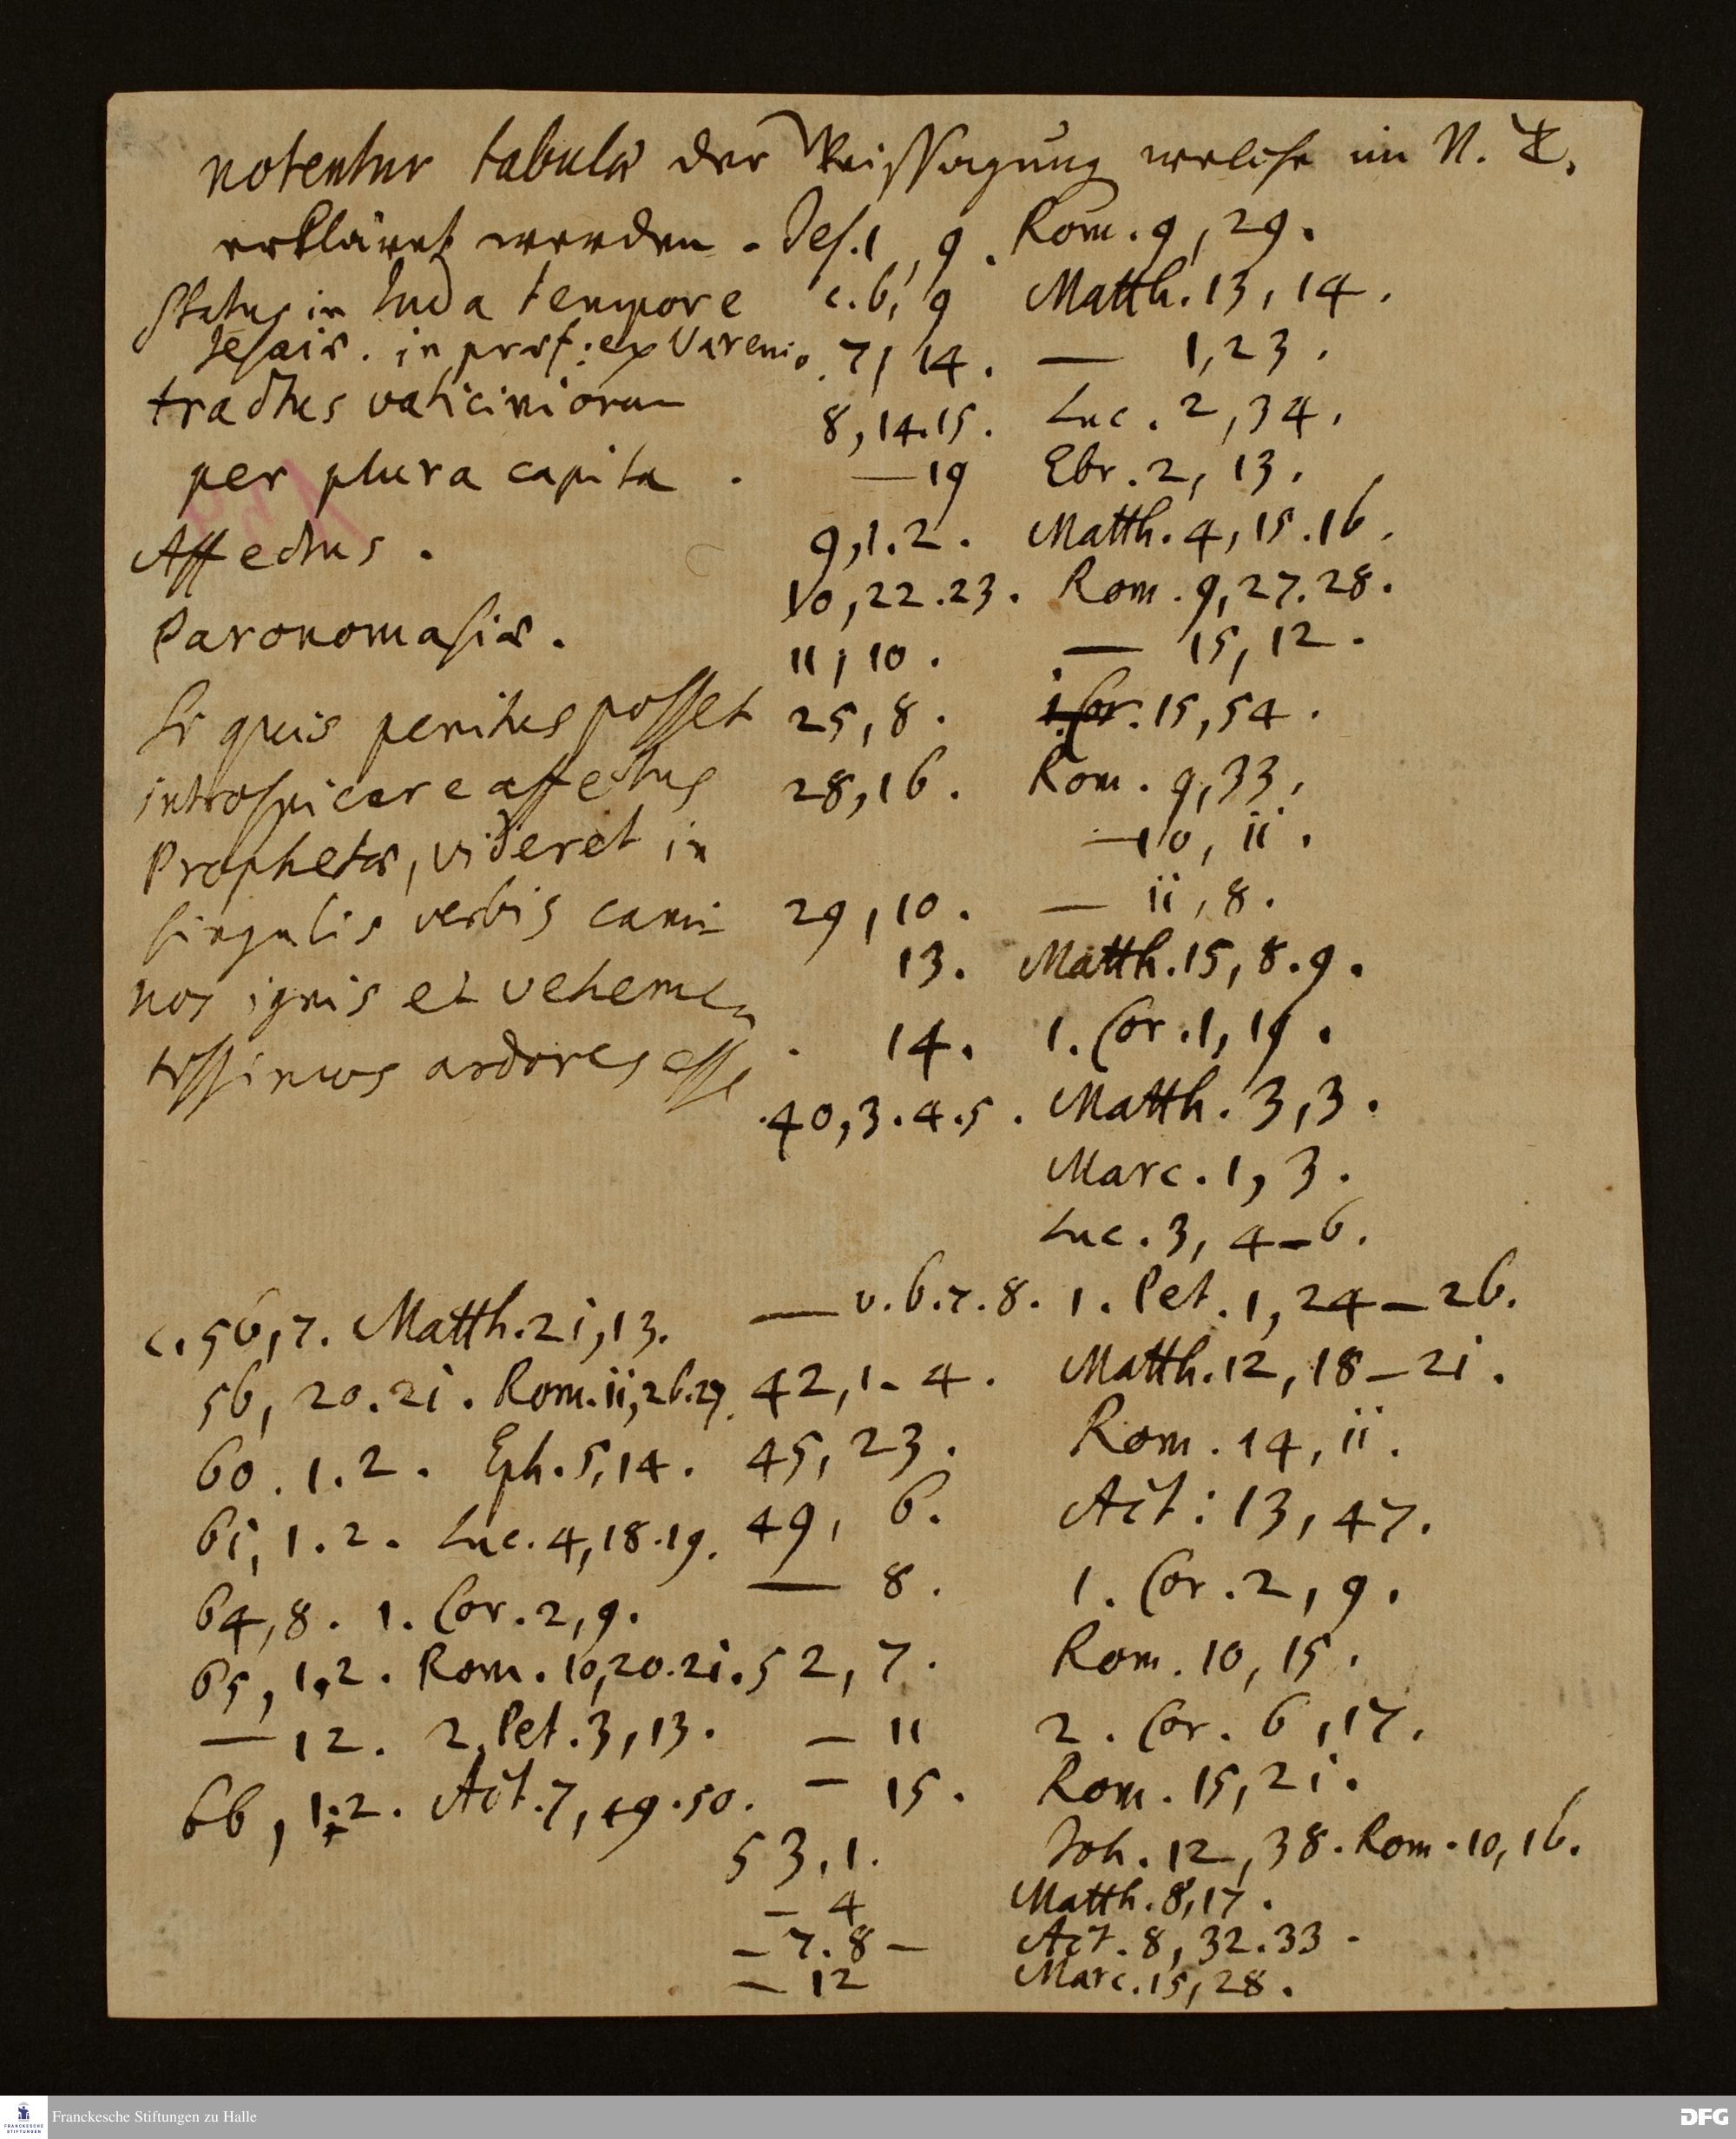 notentur tabulæ der Weissagung welche im N. T.
erkläret werden. Jes. 1, 9. Rom. 9, 29.
Status in Juda tempore c. 6, 9 Matth. 13, 14.
Jesaiæ. in præf: ex Varenio. 7, 14. — 1, 23.
tractus vaticiniorum 8, 14.15. Luc. 2, 34.
per plura capita. — 19 Ebr. 2, 13.
Affectus. 9, 1.2. Matth. 4, 15.16.
10, 22.23. Rom. 9, 27.28.
Paronomasiæ. 11, 10. — 15, 12.
Si quis penitus posset 25, 8. 1. Cor. 15, 54.
introspicere affectus 28, 16. Rom. 9, 33.
Prophetæ, videret in — 10, ii.
singulis verbis cami- 29, 10. — ii, 8.
13. Matth. 15, 8.9.
nos ignis et vehemen
14. 1. Cor. 1, 19.
tissimos ardores esse
40, 3.4.5. Matth. 3, 3.
Marc. 1, 3.
Luc. 3, 4-6.
c. 56, 7. Matth. 2i, 13. — v. 6.7.8. 1. Pet. 1, 24-26.
56, 20.2i. Rom. ii, 26.27. 42, 1-4. Matth. 12, 18-2i.
60. 1.2. Eph. 5, 14. 45, 23. Rom. 14, ii.
6i, 1.2. Luc. 4, 18.19. 49, 6. Act: 13, 47.
64, 8. 1. Cor. 2, 9. — 8. 1. Cor. 2, 9.
65, 1,2. Rom. 10, 20.2i. 52, 7. Rom. 10, 15.
— 12. 2. Pet. 3, 13. — 11 2. Cor. 6, 17.
66, 1.2. Act. 7, 49.50. — 15. Rom. 15, 2i.
53, 1. Joh. 12, 38. Rom. 10, 16.
— 4 Matth. 8, 17.
— 7.8 — Act. 8, 32.33.
— 12 Marc. 15, 28.
FRANCKESCHE STIFTUNGEN
Franckesche Stiftungen zu Halle
DFG